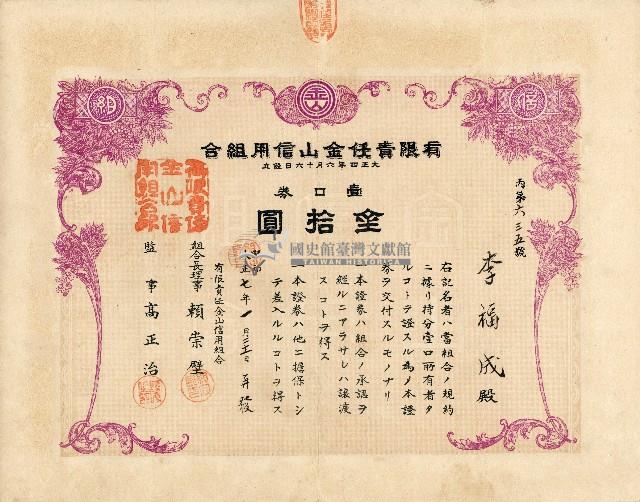 組
信
有限責任金山信用組合
大正四年六月十六日設立
壹口券
金拾圓
丙第六三五號
李福成殿
右記名者ハ當組合ノ規約
ニ據リ持分壹口所有者タ
ルコトヲ證スル為メ本證
券ヲ交付スルモノナリ
本證券ハ組合ノ承認ヲ
經ルニアラサレハ讓渡
スコトヲ得ス
一本證券ハ他ニ擔保トシ
テ差入ルルコトヲ得ス
正七年
有限責任金山信用組合
組合長理事 頼崇壁
監事 高正治
有限責任
金山信
用組合
國史館臺灣文獻館
TAIWAN HISTORICA